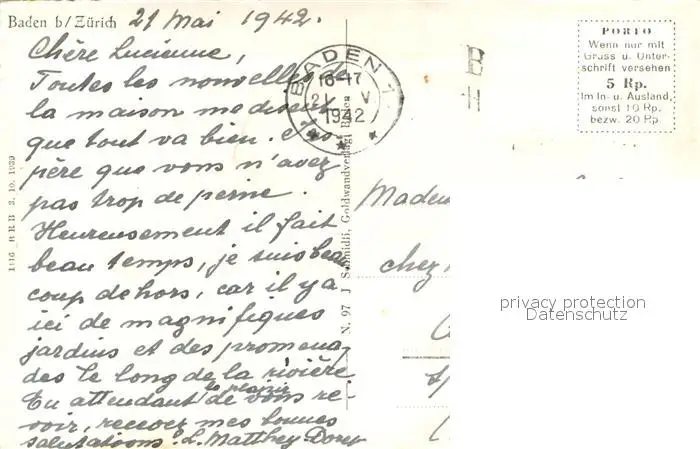 Baden b/Zürich 21 Mai 1942.
Chère Lucienne,
Toutes les nouvelles de
la maison me disent
que tout va bien. J'es-
père que vous n'avez
pas trop de peine.
Heureusement il fait
beau temps, je suis beau
coup dehors, car il y a
ici de magnifiques
jardins et des promena
des le long de la rivière.
En attendant le plaisir de vous re-
voir, recevez mes bonnes
salutations. L. Matthey Dorey
1116 HRB 3. 10. 1939
N. 97 J Schmidli, Goldwandverlag Baden
BADEN 1
16-17
21 V
1942
B
H
PORTO
Wenn nur mit
Gruss u. Unter-
schrift versehen
5 Rp.
Im In- u. Ausland,
sonst 10 Rp.
bezw. 20 Rp.
Madem
chez
privacy protection
Datenschutz